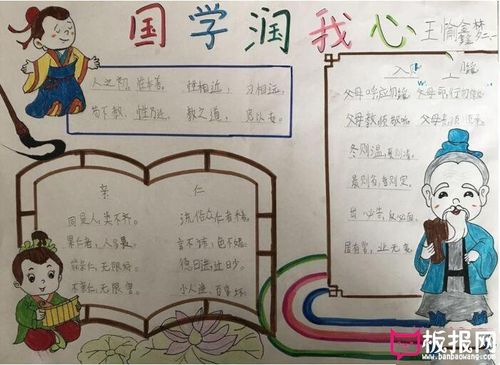 国学润我心
王愉鑫
人之初，性本善。性相近，习相远。
苟不教，性乃迁。教之道，
入
父母呼应勿缓，父母命行勿
父母教须敬听，父母责须
冬则温，夏则凊。
晨则省，昏则定。
出必告，反必面。
居有常，业无变。
亲仁
同是人，类不齐。流俗众仁者稀。
果仁者，人多畏。言不讳，色不媚。
能亲仁，无限好。德日进过日少。
不亲仁，无限害。小人进，百事坏。
板报网
www.banbaowang.com